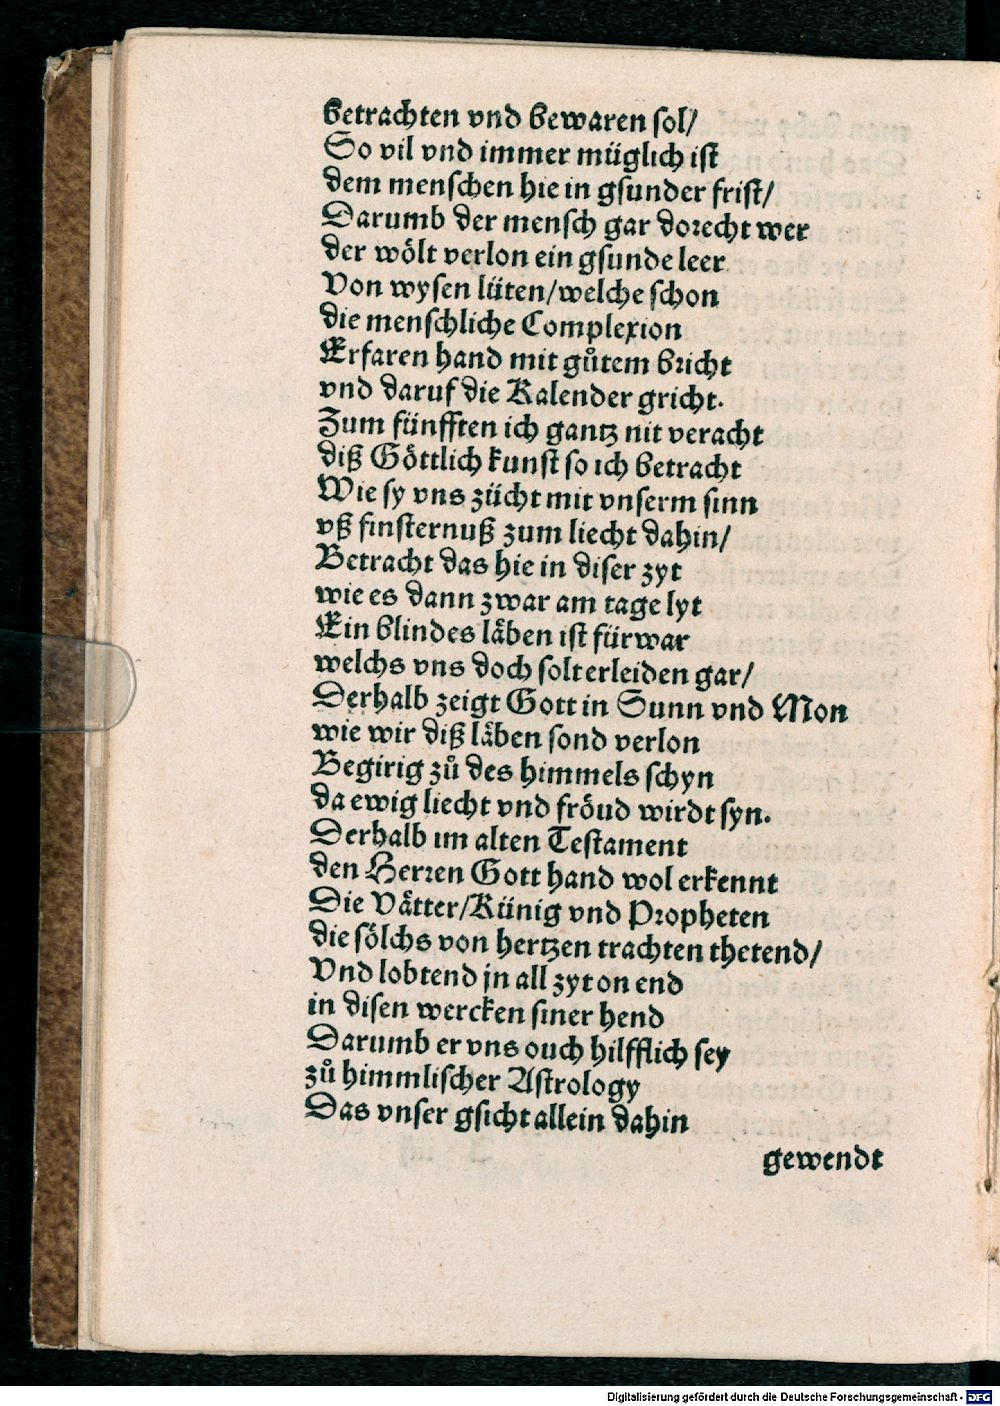 betrachten vnd bewaren sol/
So vil vnd immer müglich ist
dem menschen hie in gsunder frist/
Darumb der mensch gar dorecht wer
der wölt verlon ein gsunde leer
Von wysen lüten/welche schon
die menschliche Complexion
Erfaren hand mit gůtem bricht
vnd daruf die Kalender gricht.
Zum fünfften ich gantz nit veracht
diß Göttlich kunst so ich betracht
Wie sy vns zücht mit vnserm sinn
vß finsternuß zum liecht dahin/
Betracht das hie in diser zyt
wie es dann zwar am tage lyt
Ein blindes läben ist fürwar
welchs vns doch solt erleiden gar/
Derhalb zeigt Gott in Sunn vnd Mon
wie wir diß läben sond verlon
Begirig zů des himmels schyn
da ewig liecht vnd fröud wirdt syn.
Derhalb im alten Testament
den Herren Gott hand wol erkennt
Die Vätter/Künig vnd Propheten
die sölchs von hertzen trachten thetend/
Vnd lobtend jn all zyt on end
in disen wercken siner hend
Darumb er vns ouch hilfflich sey
zů himmlischer Astrology
Das vnser gsicht allein dahin
gewendt
Digitalisierung gefördert durch die Deutsche Forschungsgemeinschaft - DFG